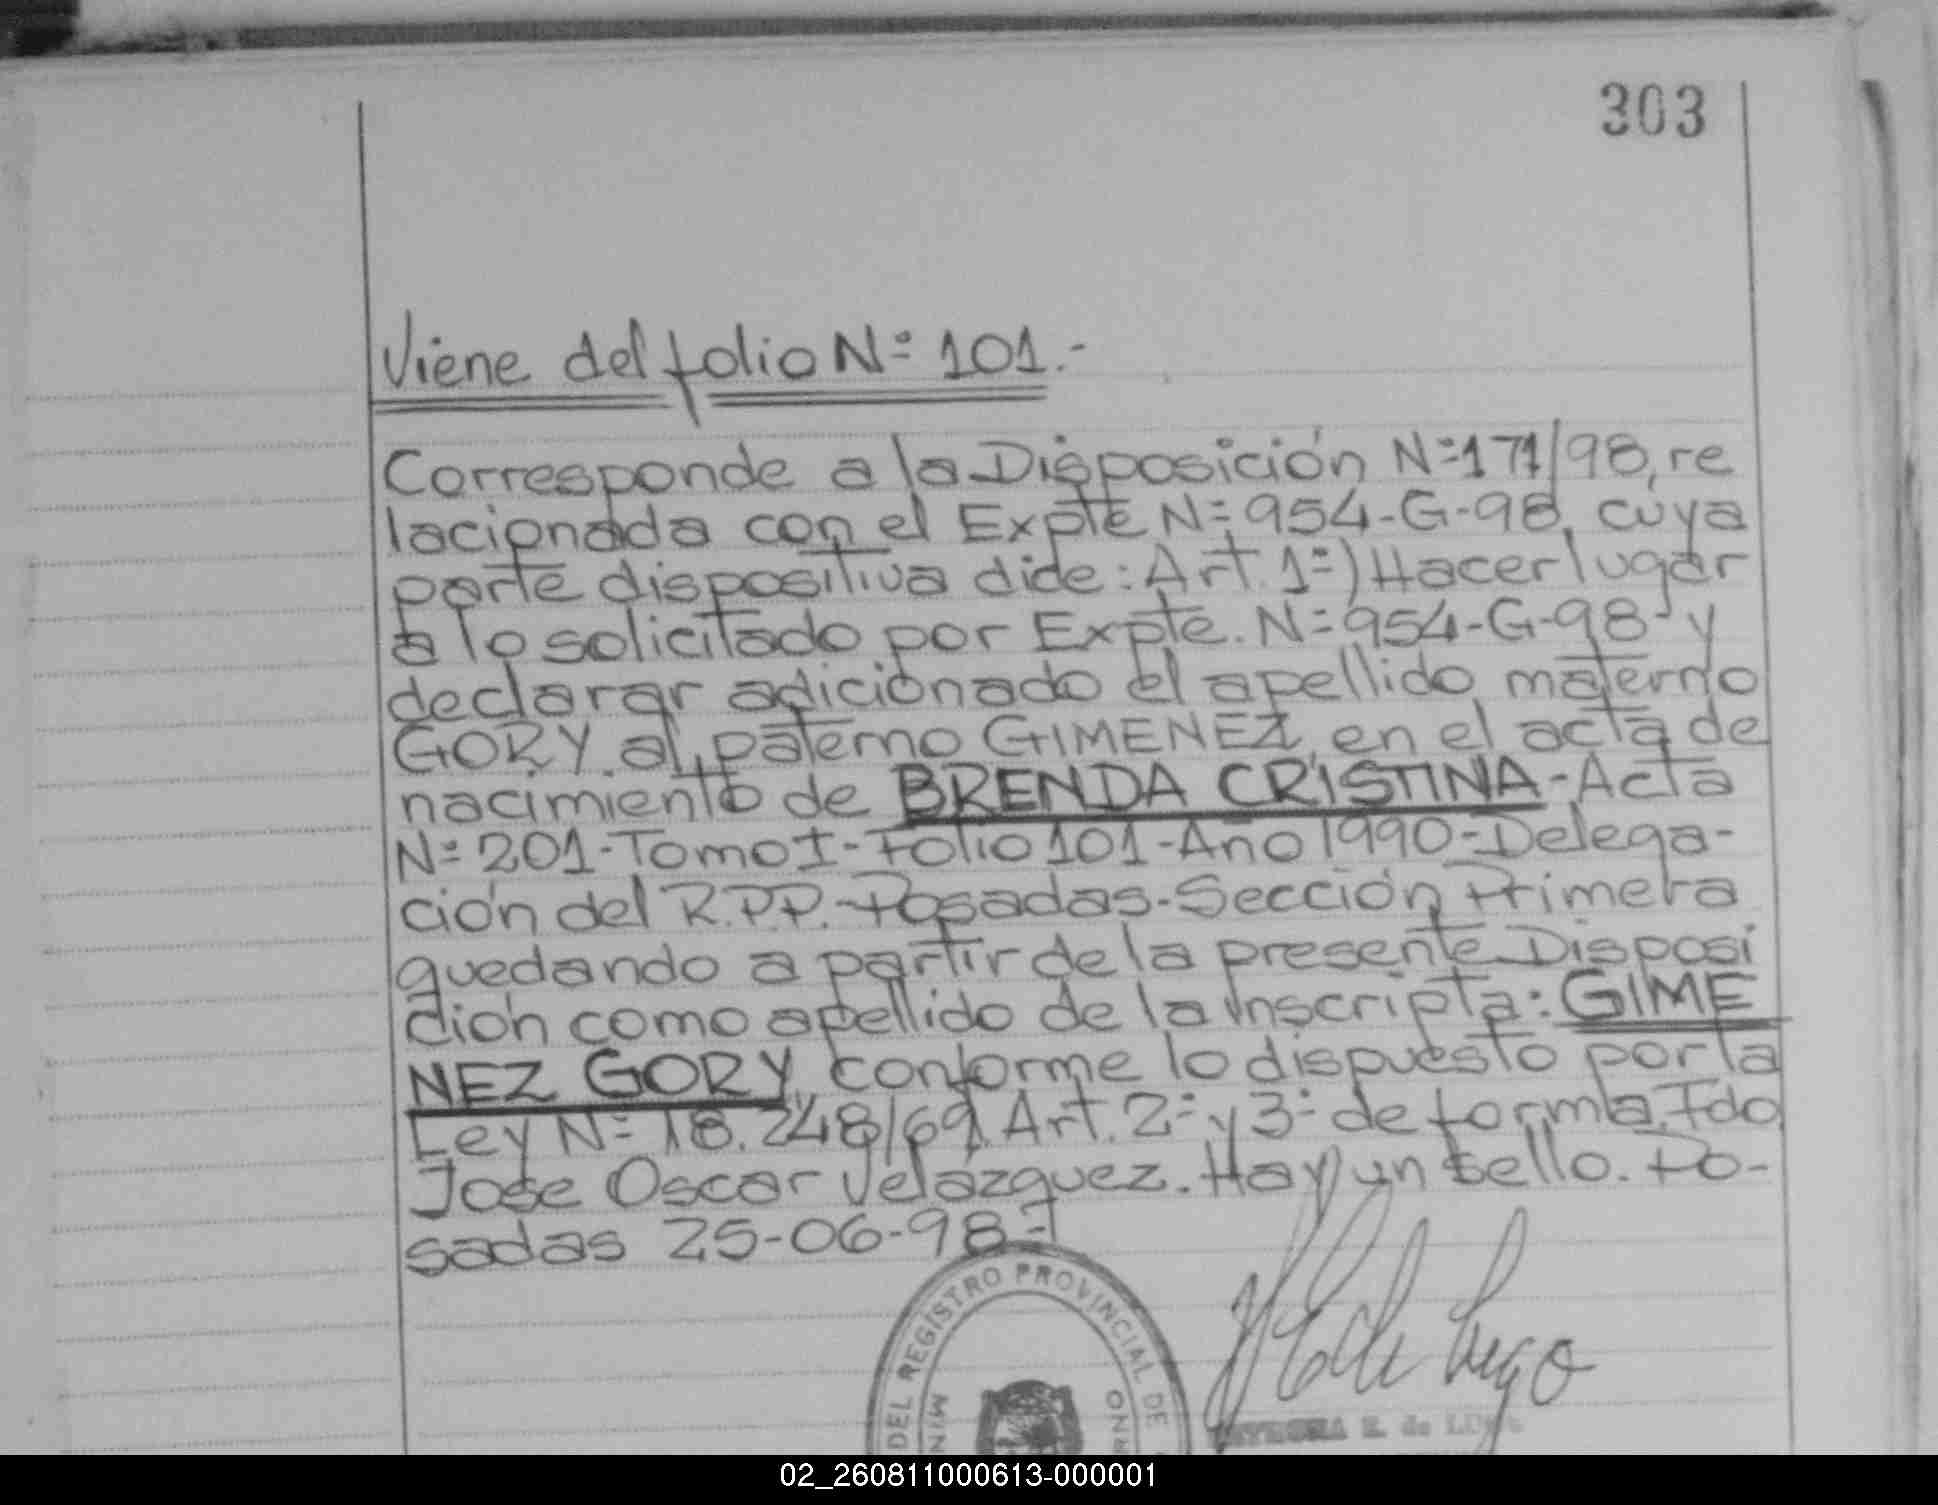 303
Viene del folio Nº 101.-
Corresponde a la Disposición Nº 171/98, re
lacionada con el Expte Nº 954-G-98, cuya
parte dispositiva dide: Art. 1º) Hacer lugar
a lo solicitado por Expte. Nº 954-G-98- y
declarar adicionado el apellido materno
GORY al paterno GIMENEZ, en el acta de
nacimiento de BRENDA CRISTINA-Acta
Nº 201-Tomo I-Folio 101-Año 1990-Delega-
ción del R.P.P.-Posadas-Sección Primera
quedando a partir de la presente Disposi
dión como apellido de la inscripta: GIME
NEZ GORY, conforme lo dispuesto por la
Ley Nº 18.248/69. Art. 2º y 3º de forma. Fdo
Jose Oscar Velázquez. Hay un sello. Po-
sadas 25-06-98-
DEL REGISTRO PROVINCIAL DE
MIN
RNO
E. de
02_260811000613-000001